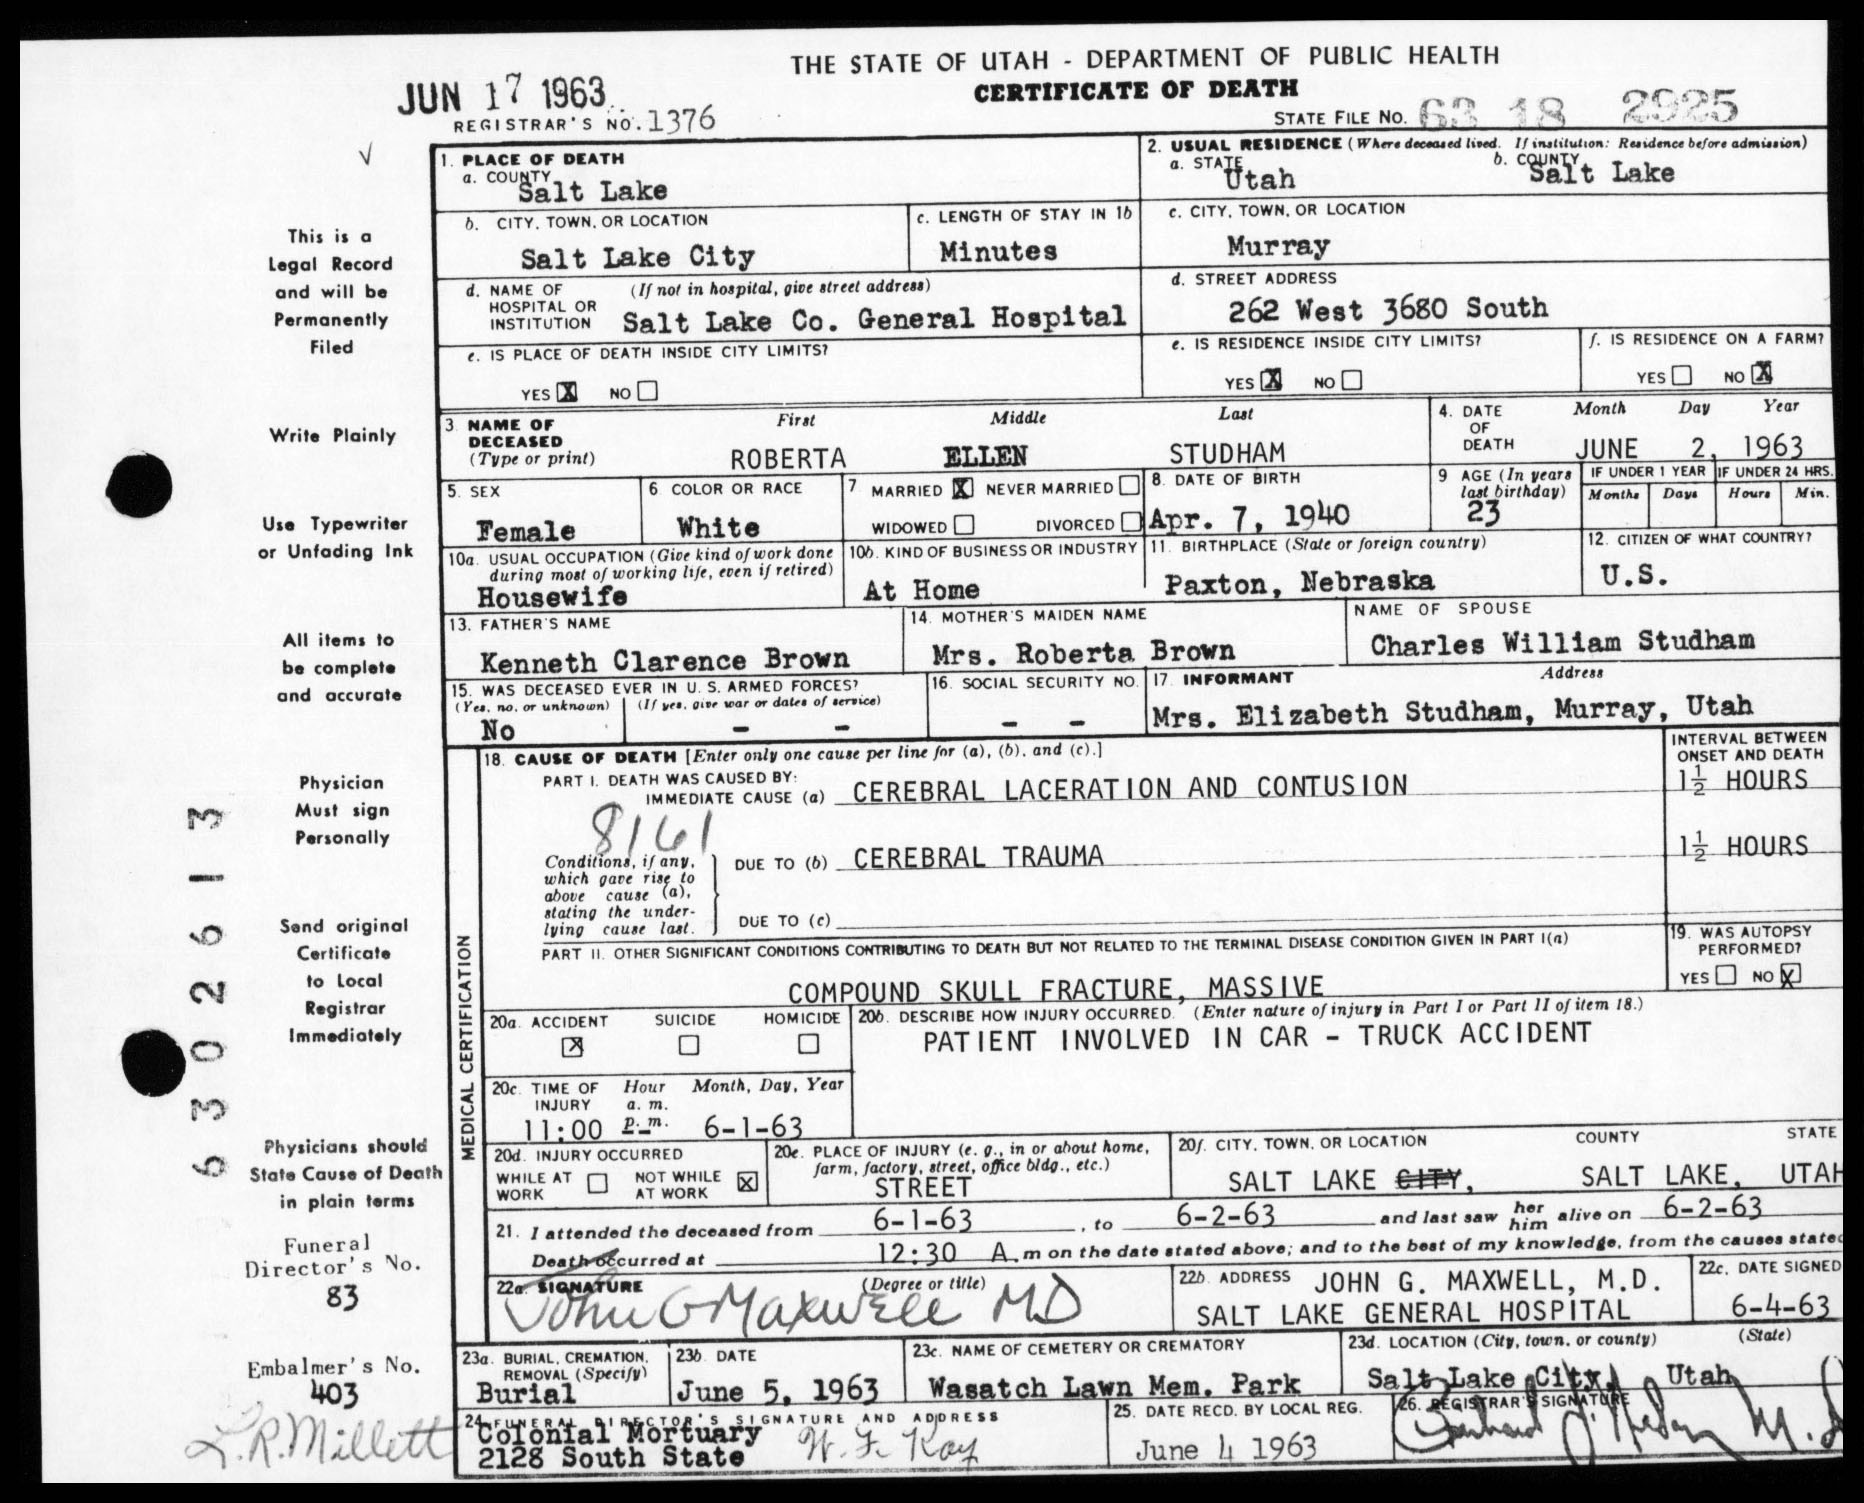 THE STATE OF UTAH - DEPARTMENT OF PUBLIC HEALTH
CERTIFICATE OF DEATH
JUN 17 1963
REGISTRAR'S NO. 1376
STATE FILE NO. 63 18 2925
1. PLACE OF DEATH
a. COUNTY
Salt Lake
2. USUAL RESIDENCE (Where deceased lived. If institution: Residence before admission)
a. STATE Utah b. COUNTY Salt Lake
b. CITY, TOWN, OR LOCATION
Salt Lake City
c. LENGTH OF STAY IN 1b
Minutes
c. CITY, TOWN, OR LOCATION
Murray
d. NAME OF HOSPITAL OR INSTITUTION (If not in hospital, give street address)
Salt Lake Co. General Hospital
d. STREET ADDRESS
262 West 3680 South
e. IS PLACE OF DEATH INSIDE CITY LIMITS?
YES X NO
e. IS RESIDENCE INSIDE CITY LIMITS?
YES X NO
f. IS RESIDENCE ON A FARM?
YES NO X
3. NAME OF DECEASED (Type or print)
First Middle Last
ROBERTA ELLEN STUDHAM
4. DATE OF DEATH Month Day Year
JUNE 2, 1963
5. SEX
Female
6. COLOR OR RACE
White
7. MARRIED X NEVER MARRIED
WIDOWED DIVORCED
8. DATE OF BIRTH
Apr. 7, 1940
9 AGE (In years last birthday)
23
IF UNDER 1 YEAR IF UNDER 24 HRS.
Months Days Hours Min.
10a. USUAL OCCUPATION (Give kind of work done during most of working life, even if retired)
Housewife
10b. KIND OF BUSINESS OR INDUSTRY
At Home
11. BIRTHPLACE (State or foreign country)
Paxton, Nebraska
12. CITIZEN OF WHAT COUNTRY?
U.S.
13. FATHER'S NAME
Kenneth Clarence Brown
14. MOTHER'S MAIDEN NAME
Mrs. Roberta Brown
NAME OF SPOUSE
Charles William Studham
15. WAS DECEASED EVER IN U. S. ARMED FORCES?
(Yes, no, or unknown) (If yes, give war or dates of service)
No - -
16. SOCIAL SECURITY NO.
- -
17. INFORMANT Address
Mrs. Elizabeth Studham, Murray, Utah
MEDICAL CERTIFICATION
18. CAUSE OF DEATH [Enter only one cause per line for (a), (b), and (c).]
INTERVAL BETWEEN ONSET AND DEATH
PART I. DEATH WAS CAUSED BY:
IMMEDIATE CAUSE (a) CEREBRAL LACERATION AND CONTUSION
1½ HOURS
8161
Conditions, if any, which gave rise to above cause (a), stating the underlying cause last.
DUE TO (b) CEREBRAL TRAUMA
1½ HOURS
DUE TO (c)
PART II. OTHER SIGNIFICANT CONDITIONS CONTRIBUTING TO DEATH BUT NOT RELATED TO THE TERMINAL DISEASE CONDITION GIVEN IN PART I(a)
COMPOUND SKULL FRACTURE, MASSIVE
19. WAS AUTOPSY PERFORMED?
YES NO X
20a. ACCIDENT SUICIDE HOMICIDE
X
20b. DESCRIBE HOW INJURY OCCURRED. (Enter nature of injury in Part I or Part II of item 18.)
PATIENT INVOLVED IN CAR - TRUCK ACCIDENT
20c. TIME OF INJURY Hour a. m. p. m. Month, Day, Year
11:00 6-1-63
20d. INJURY OCCURRED
WHILE AT WORK NOT WHILE AT WORK X
20e. PLACE OF INJURY (e. g., in or about home, farm, factory, street, office bldg., etc.)
STREET
20f. CITY, TOWN, OR LOCATION COUNTY STATE
SALT LAKE CITY, SALT LAKE, UTAH
21. I attended the deceased from 6-1-63, to 6-2-63 and last saw her him alive on 6-2-63
Death occurred at 12:30 A. m on the date stated above; and to the best of my knowledge, from the causes stated
22a. SIGNATURE (Degree or title)
John G Maxwell MD
22b. ADDRESS JOHN G. MAXWELL, M.D.
SALT LAKE GENERAL HOSPITAL
22c. DATE SIGNED
6-4-63
23a. BURIAL, CREMATION, REMOVAL (Specify)
Burial
23b. DATE
June 5, 1963
23c. NAME OF CEMETERY OR CREMATORY
Wasatch Lawn Mem. Park
23d. LOCATION (City, town, or county) (State)
Salt Lake City, Utah
24. FUNERAL DIRECTOR'S SIGNATURE AND ADDRESS
Colonial Mortuary
2128 South State
25. DATE RECD. BY LOCAL REG.
June 4 1963
26. REGISTRAR'S SIGNATURE
This is a
Legal Record
and will be
Permanently
Filed
Write Plainly
Use Typewriter
or Unfading Ink
All items to
be complete
and accurate
Physician
Must sign
Personally
Send original
Certificate
to Local
Registrar
Immediately
Physicians should
State Cause of Death
in plain terms
Funeral
Director's No.
83
Embalmer's No.
403
L.R. Millett
6302613